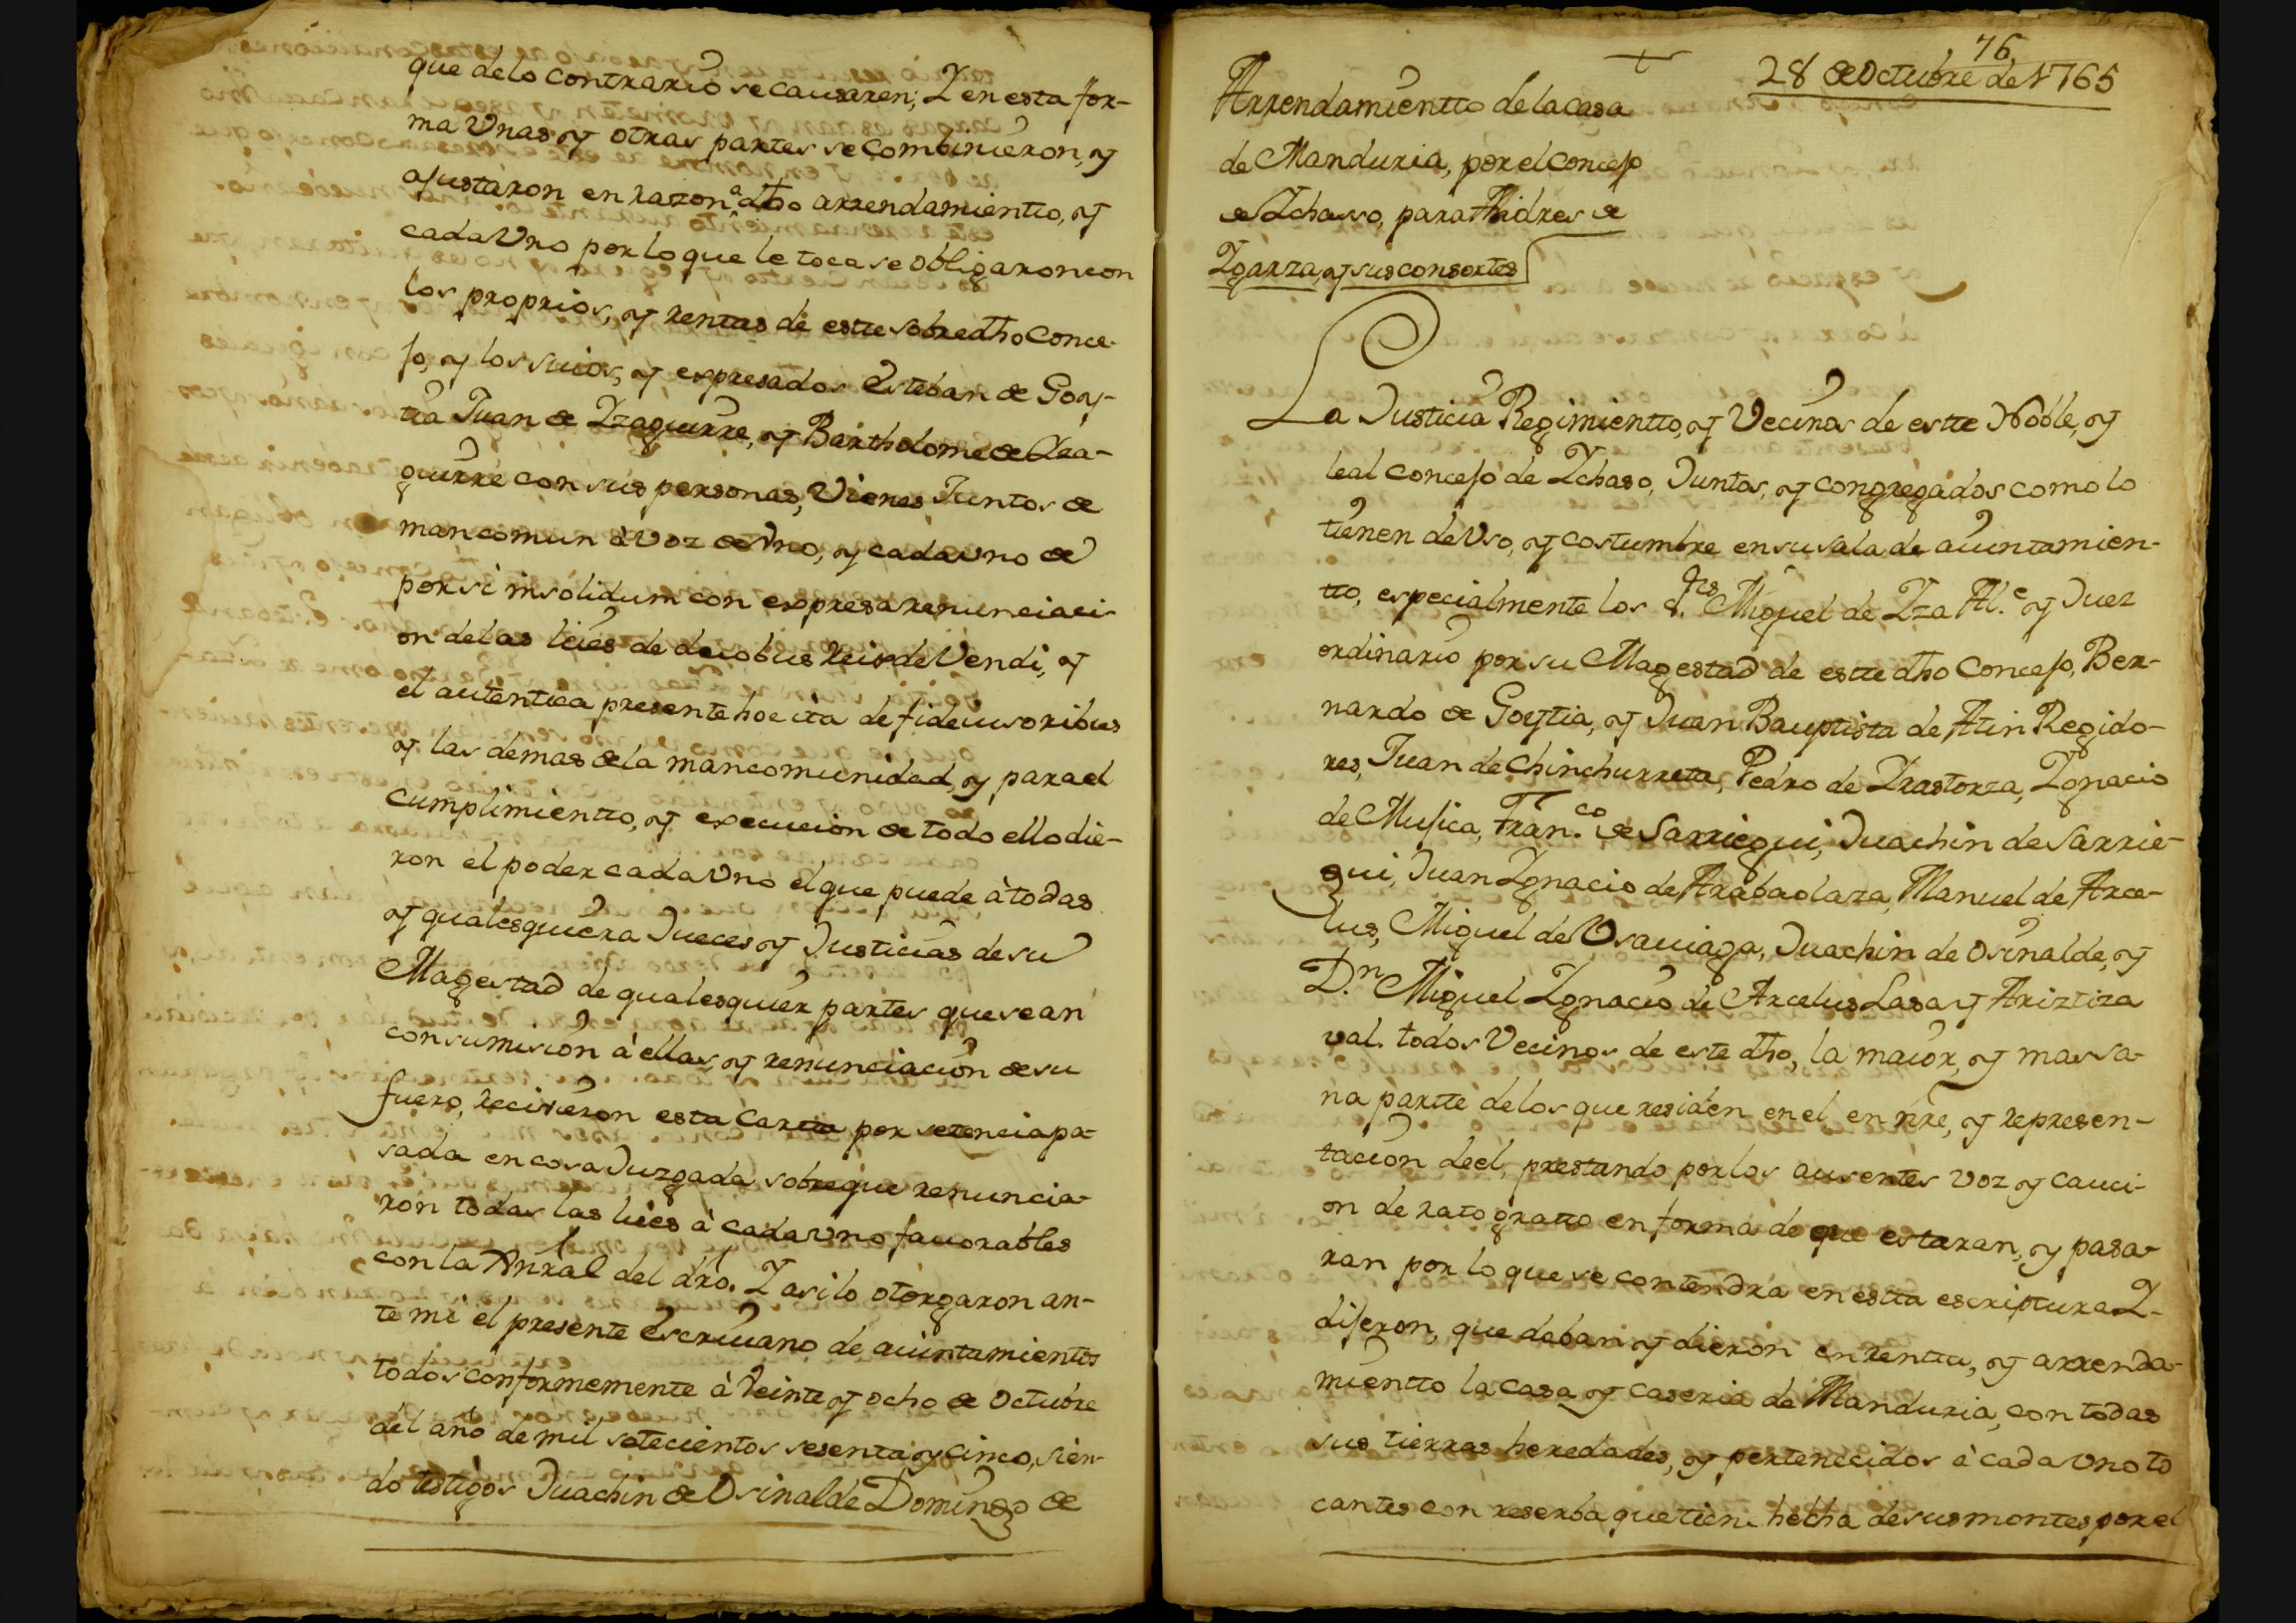 que delo contrario se causaren; Y en esta for-
ma Vnas y otras partes se combinieron, y
ajustaron en razon a dho arrendamientto, y
cada Vno por lo que le toca se obligaron con
los proprios, y rentas de estte sobredho Conce-
jo, y los suios, y expresados Esteban de Goy-
tia Juan de Yzaguirre, y Bartholome de
guirre con sus personas, Vienes Juntos de
mancomun à voz de Vno, y cada vno de
por si insolidum con expresa renunciaci-
on delas leies de duobus Reis de Vendi, y
el autentica presente hoc ita de fideiusoribus
y las demas dela mancomunidad, y para el
cumplimientto, y execucion de todo ello die-
ron el poder cada Vno el que puede à todas
y qualesquiera Jueces y Justicias de su
Magestad de qualesquier partes que sean
con sumision à ellas, y renunciacion de su
fuero, recivieron esta Cartta por setencia pa-
sada en cosa Juzgada sobre que renuncia-
ron todas las leies à cada vno fauorables
con la Gnral del dro. Y asi lo otorgaron an-
te mi el presente Escriuano de aiuntamientos
todos conformemente à Veinte y ocho de Octubre
del año de mil setecientos sesenta y Cinco, sien-
do testigos Juachin de Osinalde Domingo de
76
28 de Octubre de 1765
Arrendamientto de la casa
de Manduria, por el Concejo
de Ychasso, para Andres de
Ygarza, y sus consortes
La Justicia Regimientto, y Vecinos de estte Noble, y
leal Concejo de Ychaso, Juntos, y congregados como lo
tienen de Vso, y costumbre en su sala de aiuntamien-
tto, especialmente los Sres. Miguel de Yza Al.e y Juez
ordinario por su Magestad de estte dho Concejo, Ber-
nardo de Goytia, y Juan Bauptista de Atin Regido-
res, Juan de Chinchurreta, Pedro de Yrastorza, Ygnacio
de Mujica, Fran.co de Sarriegui, Juachin de Sarrie-
gui, Juan Ygnacio de Arabaolaza, Manuel de Arce-
lus, Miguel de Vsauiaga, Juachin de Osinalde, y
D.n Miguel Ygnacio de Arcelus Lasa y Ariztiza
val. todos Vecinos de este dho, la maior, y mas sa-
na partte delos que residen en el, en nre, y represen-
tacion deel, prestando por los ausentes voz y cauci-
on de rato gratto en forma de que estaran, y pasa-
ran por lo que se contendra en estta escriptura Y-
dijeron, que daban y dieron en rentta, y arrenda-
mientto la casa y caseria de Manduria, con todas
sus tierras heredades, y pertenecidos à cada vno to
cantes con reserba que tiene hetha de sus montes por el